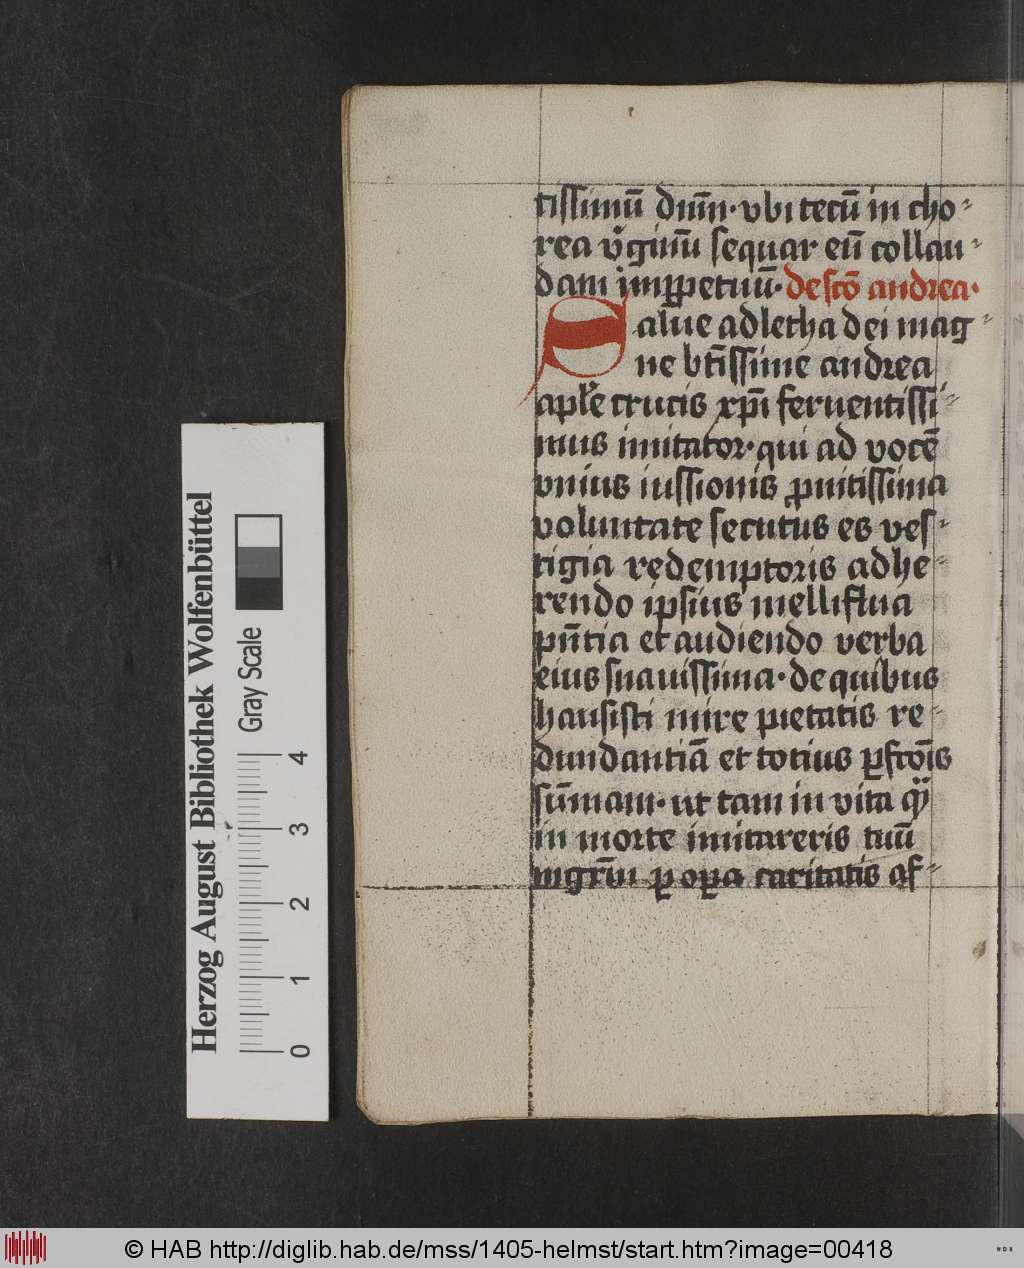 tissimū dn̄m· vbi tecū in cho⸗
rea v̾ginū sequar eū collau⸗
dam imꝑpetuū· de sc̄o andrea·
Salue adletha dei mag⸗
ne bt̄issime andrea
apl̄e crucis xp̄i feruentissi⸗
mus imitator· qui ad vocē
vnius iussionis ꝓmtissima
voluntate secutus es ves⸗
tigia redemptoris adhe⸗
rendo ipsius melliflua
pn̄tia et audiendo verba
eius suauissima· de quibus
hausisti mire pietatis re⸗
dundantiā et totius ꝑfcōis
sūmam· ut tam in vita qͣ̄
in morte imitareris tuū
mgr̄m ꝑ oꝑa caritatis af⸗
Herzog August Bibliothek Wolfenbüttel
Gray Scale
0 1 2 3 4
© HAB http://diglib.hab.de/mss/1405-helmst/start.htm?image=00418